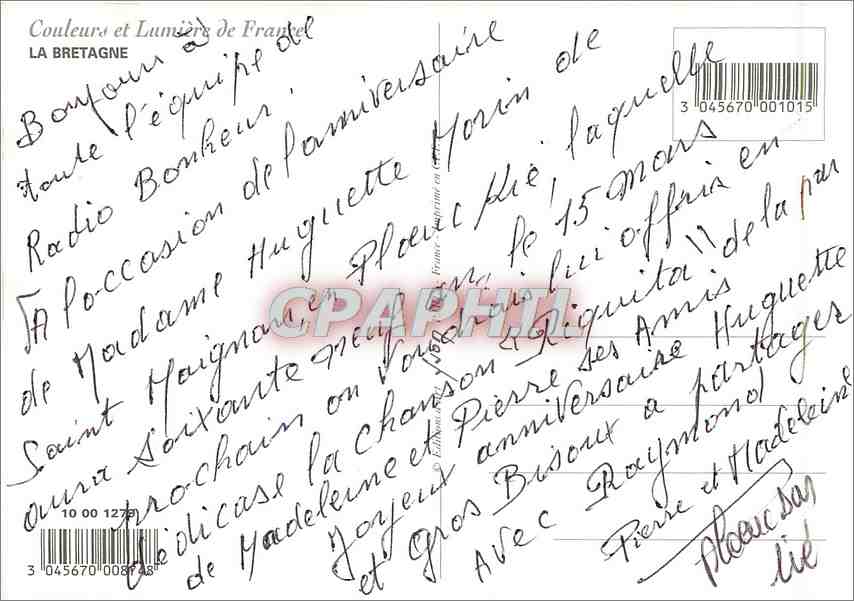 Couleurs et Lumière de France
LA BRETAGNE
Bonjour à
toute l'équipe de
Radio Bonheur,
A l'occasion de l'anniversaire
de Madame Huguette Morin de
Saint Maignan, en Plœuc Lié, laquelle
aura soixante neuf ans, le 15 mars
prochain on voudrais lui offrir en
dédicase la chanson "Riquita" de la par
de Madeleine et Pierre ses Amis
Joyeux anniversaire Huguette
et Gros Bisoux a partager
Avec Raymond
Pierre et Madeleine
Plœuc sur
lié
3 045670 001015
10 00 1279
3 045670 008748
CPAPHIL